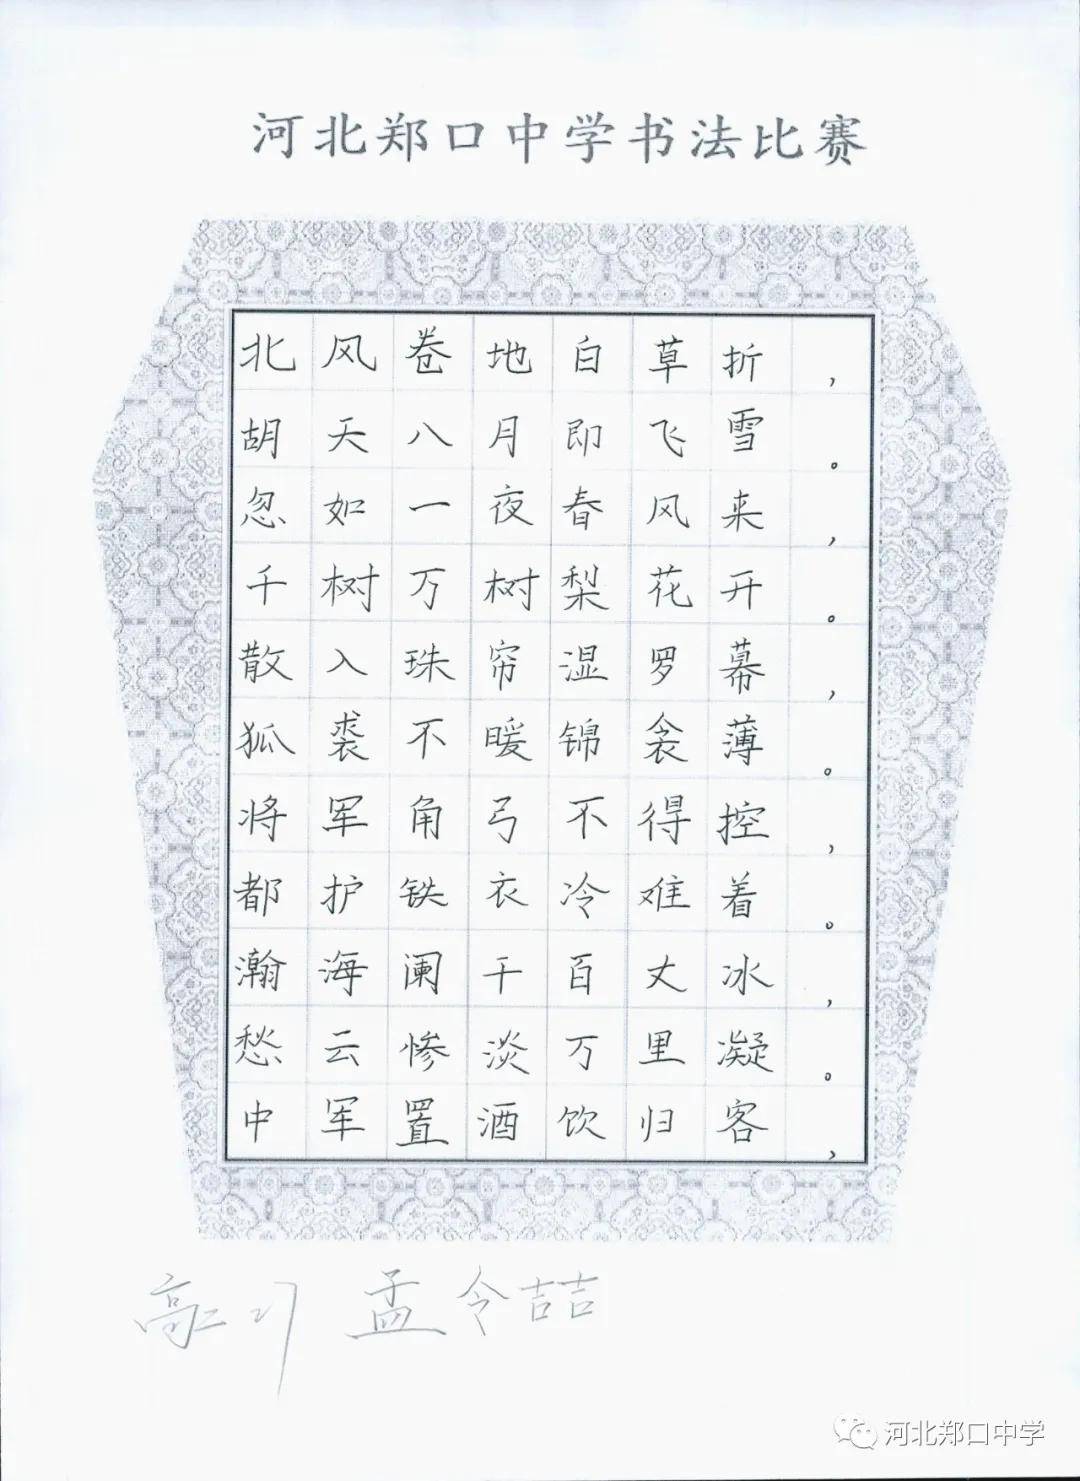 河北郑口中学书法比赛
北风卷地白草折，
胡天八月即飞雪。
忽如一夜春风来，
千树万树梨花开。
散入珠帘湿罗幕，
狐裘不暖锦衾薄。
将军角弓不得控，
都护铁衣冷难着。
瀚海阑干百丈冰，
愁云惨淡万里凝。
中军置酒饮归客，
高二 孟令喆
河北郑口中学